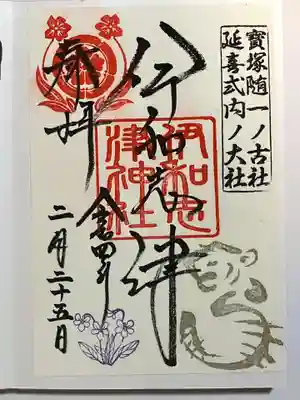 寳塚随一ノ古社
延喜式内ノ大社
伊和志津
伊和志
津神社
奉拝
令和四年
二月二十五日